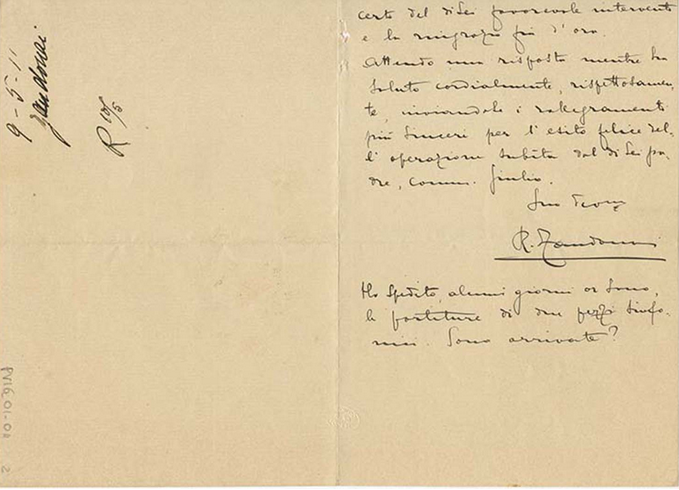 9-5-11
Zandonai
R 10/5
certo del di Lei favorevole intervento
e la ringrazio fin d'ora.
Attendo una risposta mentre La
saluto cordialmente, rispettosamen-
te, inviandole i rallegramenti
più sinceri per l'esito felice del-
l'operazione subita dal di Lei pa-
dre, comm. Giulio.
Suo
R. Zandonai
Ho spedito, alcuni giorni or sono,
le partiture di due pezzi sinfo-
nici. Sono arrivate?
PV16_01-02
2